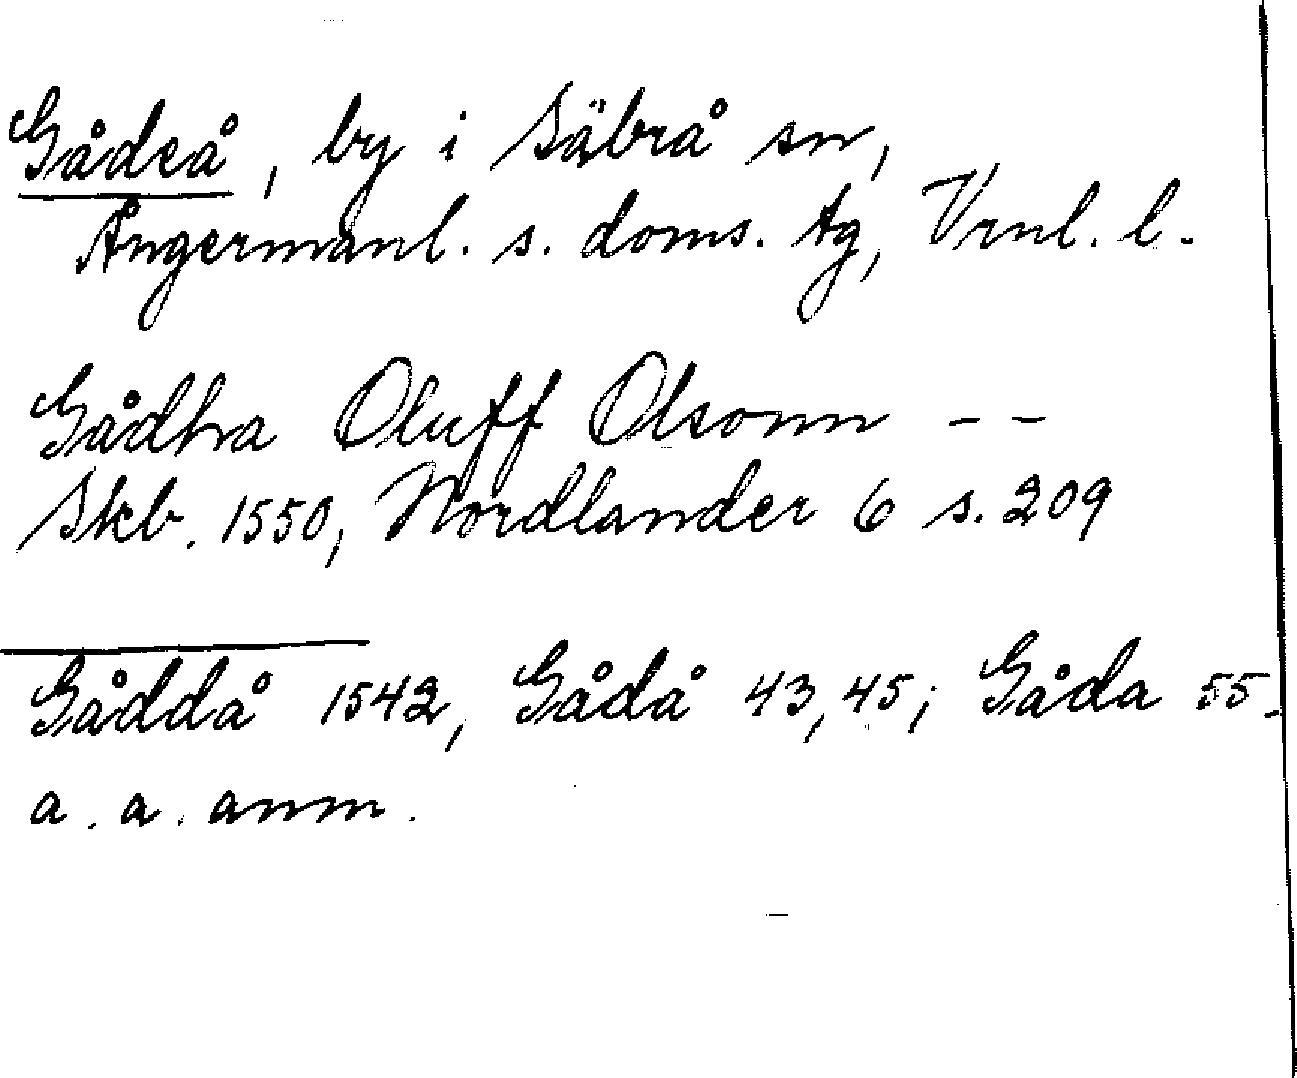 Gådeå, by i Säbrå sn,
Ångermanl. s. doms. tg, Vrnl. l.
Gådha Oluff Olsonn - -
Skb. 1550, Nordlander 6 s. 209
Gåddå 1542, Gådå 43, 45; Gåda 55.
a. a. anm.